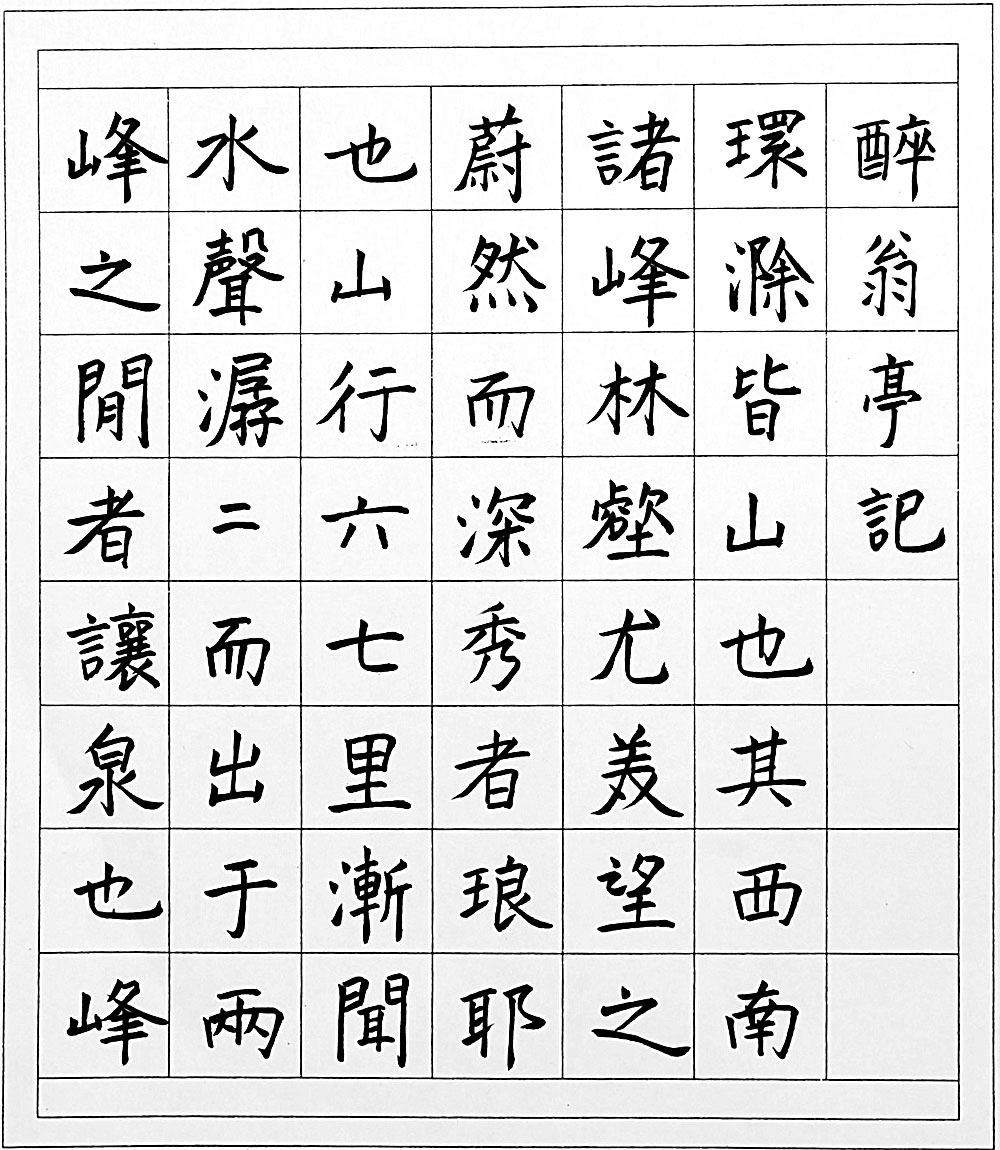 醉翁亭記
環滁皆山也其西南
諸峰林壑尤美望之
蔚然而深秀者琅耶
也山行六七里漸聞
水聲潺二而出于兩
峰之閒者讓泉也峰